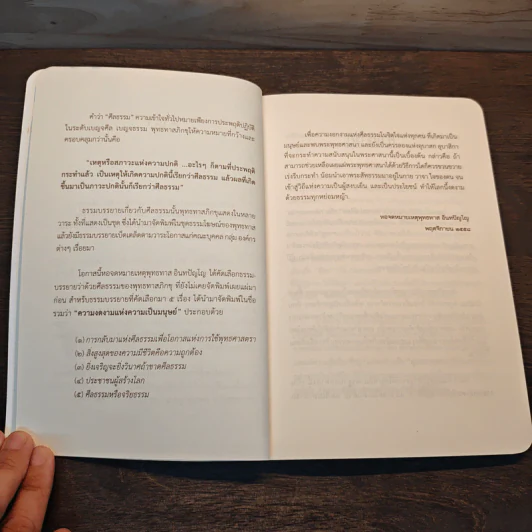 คำว่า "ศีลธรรม" ความเข้าใจทั่วไปหมายเพียงการประพฤติปฏิบัติ
ในระดับเบญจศีล เบญจธรรม พุทธทาสภิกขุให้ความหมายที่กว้างและ
ครอบคลุมกว่านั้นคือ
"เหตุหรือสภาวะแห่งความปกติ ...อะไรๆ ก็ตามที่ประพฤติ
กระทำแล้ว เป็นเหตุให้เกิดความปกตินี้เรียกว่าศีลธรรม แล้วผลที่เกิด
ขึ้นมาเป็นภาวะปกตินั้นก็เรียกว่าศีลธรรม"
ธรรมบรรยายเกี่ยวกับศีลธรรมนั้นพุทธทาสภิกขุแสดงในหลาย
วาระ ทั้งที่แสดงเป็นชุด ซึ่งได้นำมาจัดพิมพ์ในชุดธรรมโฆษณ์ของพุทธทาส
แล้วยังมีธรรมบรรยายเบ็ดเตล็ดตามวาระโอกาสแก่คณะบุคคล กลุ่ม องค์กร
ต่างๆ เรื่อยมา
โอกาสนี้หอจดหมายเหตุพุทธทาส อินทปัญโญ ได้คัดเลือกธรรม-
บรรยายว่าด้วยศีลธรรมของพุทธทาสภิกขุ ที่ยังไม่เคยจัดพิมพ์เผยแผ่มา
ก่อน สำหรับธรรมบรรยายที่คัดเลือกมา ๕ เรื่อง ได้นำมาจัดพิมพ์ในชื่อ
รวมว่า "ความงดงามแห่งความเป็นมนุษย์" ประกอบด้วย
(๑) การกลับมาแห่งศีลธรรมเพื่อโอกาสแห่งการใช้พุทธศาสตร์
(๒) สิ่งสูงสุดของความมีชีวิตคือความถูกต้อง
(๓) ยิ่งเจริญจะยิ่งวินาศถ้าขาดศีลธรรม
(๔) ประชาชนผู้สร้างโลก
(๕) ศีลธรรมหรือจริยธรรม
เพื่อความงอกงามแห่งศีลธรรมในจิตใจแห่งทุกคน ที่เกิดมาเป็น
มนุษย์และพบพระพุทธศาสนา และถึงเป็นควรตลอดแห่งอุบาสก อุบาสิกา
ที่จะกระทำความสนับสนุนในพระศาสนานี้เป็นเบื้องต้น กล่าวคือ ถ้า
สามารถช่วยเหลือเผยแผ่พระพุทธศาสนาได้ด้วยวิธีการใดก็ควรขวนขวาย
เร่งรีบกระทำ น้อมนำเอาพระศีลธรรมมาอยู่ในกาย วาจา ใจของตน จน
เข้าสู่วิถีแห่งความเป็นผู้สงบเย็น และเป็นประโยชน์ ทำให้โลกนี้งดงาม
ด้วยธรรมทุกหย่อมหญ้า
หอจดหมายเหตุพุทธทาส อินทปัญโญ
พฤศจิกายน ๒๕๕๘